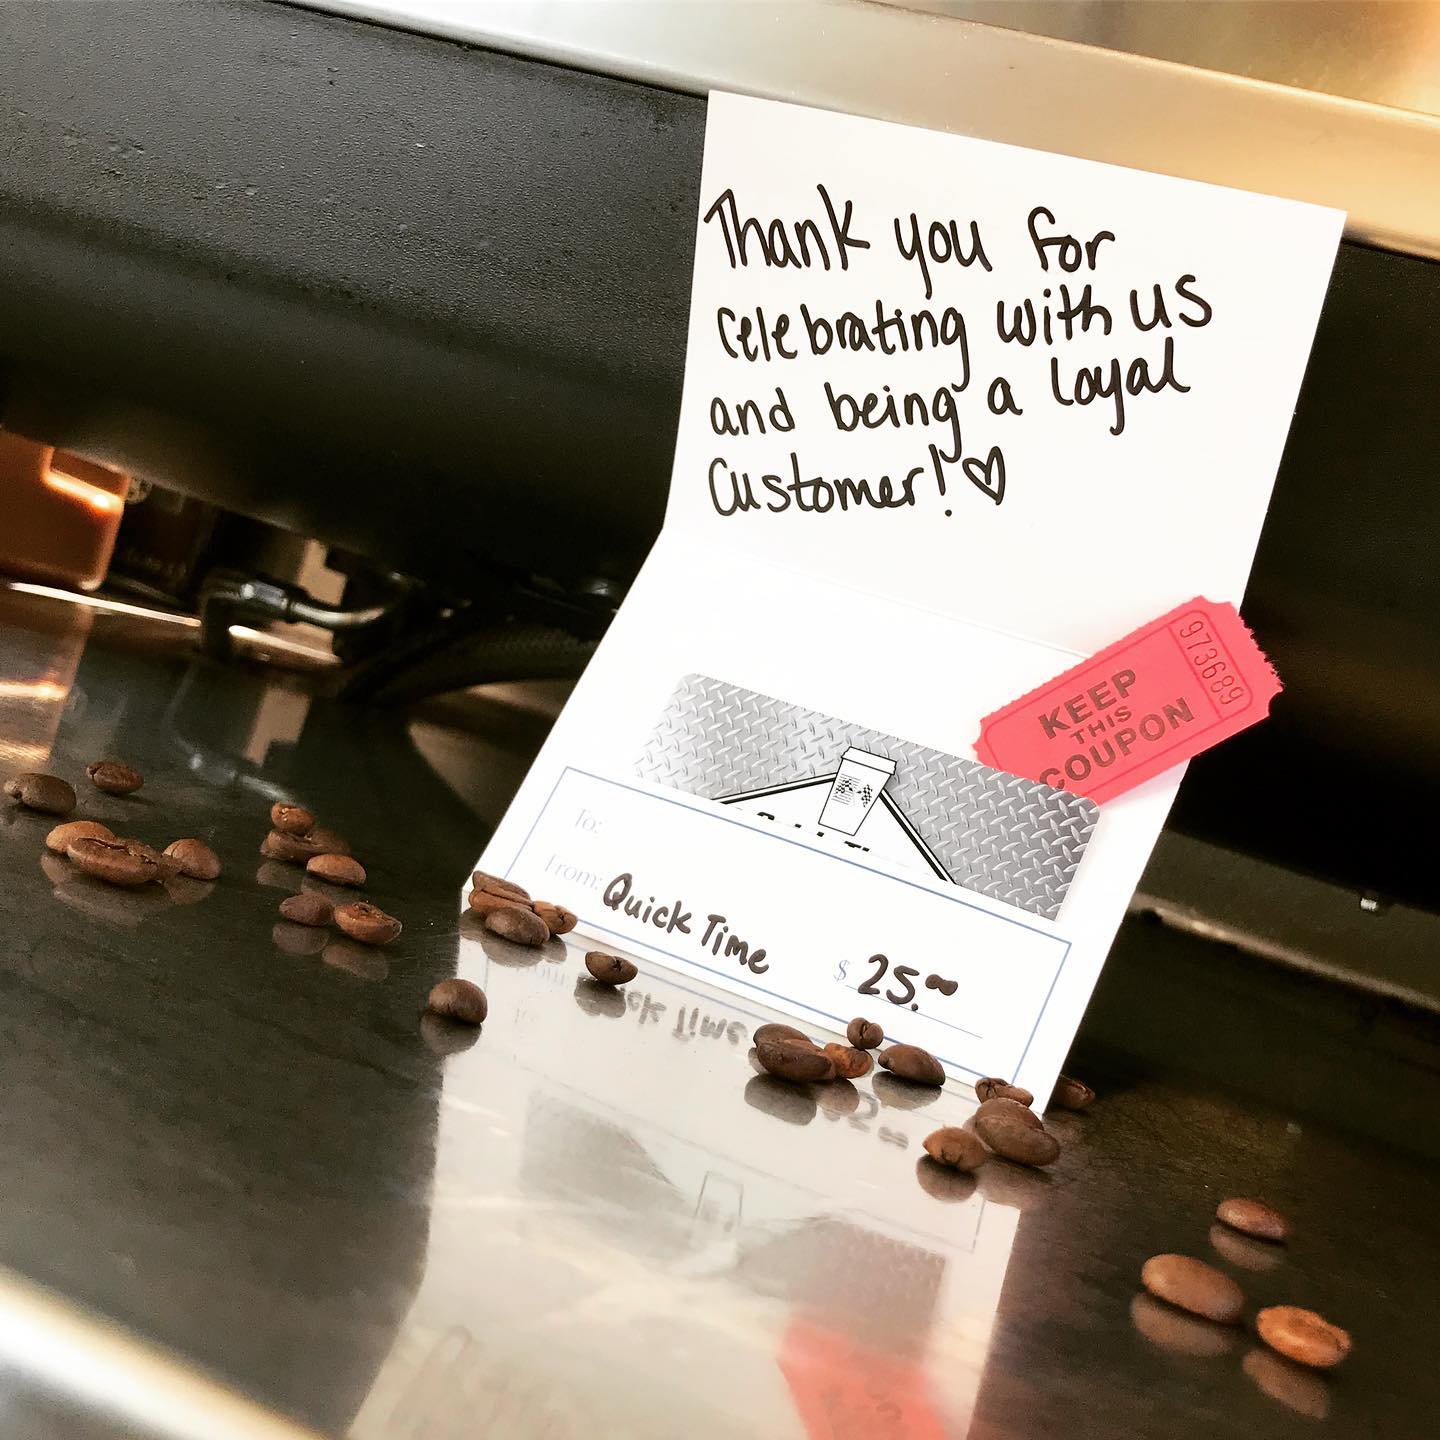 Thank you for
celebrating with us
and being a loyal
customer! ♡
973689
KEEP
THIS
COUPON
To:
From: Quick Time
$ 25.00